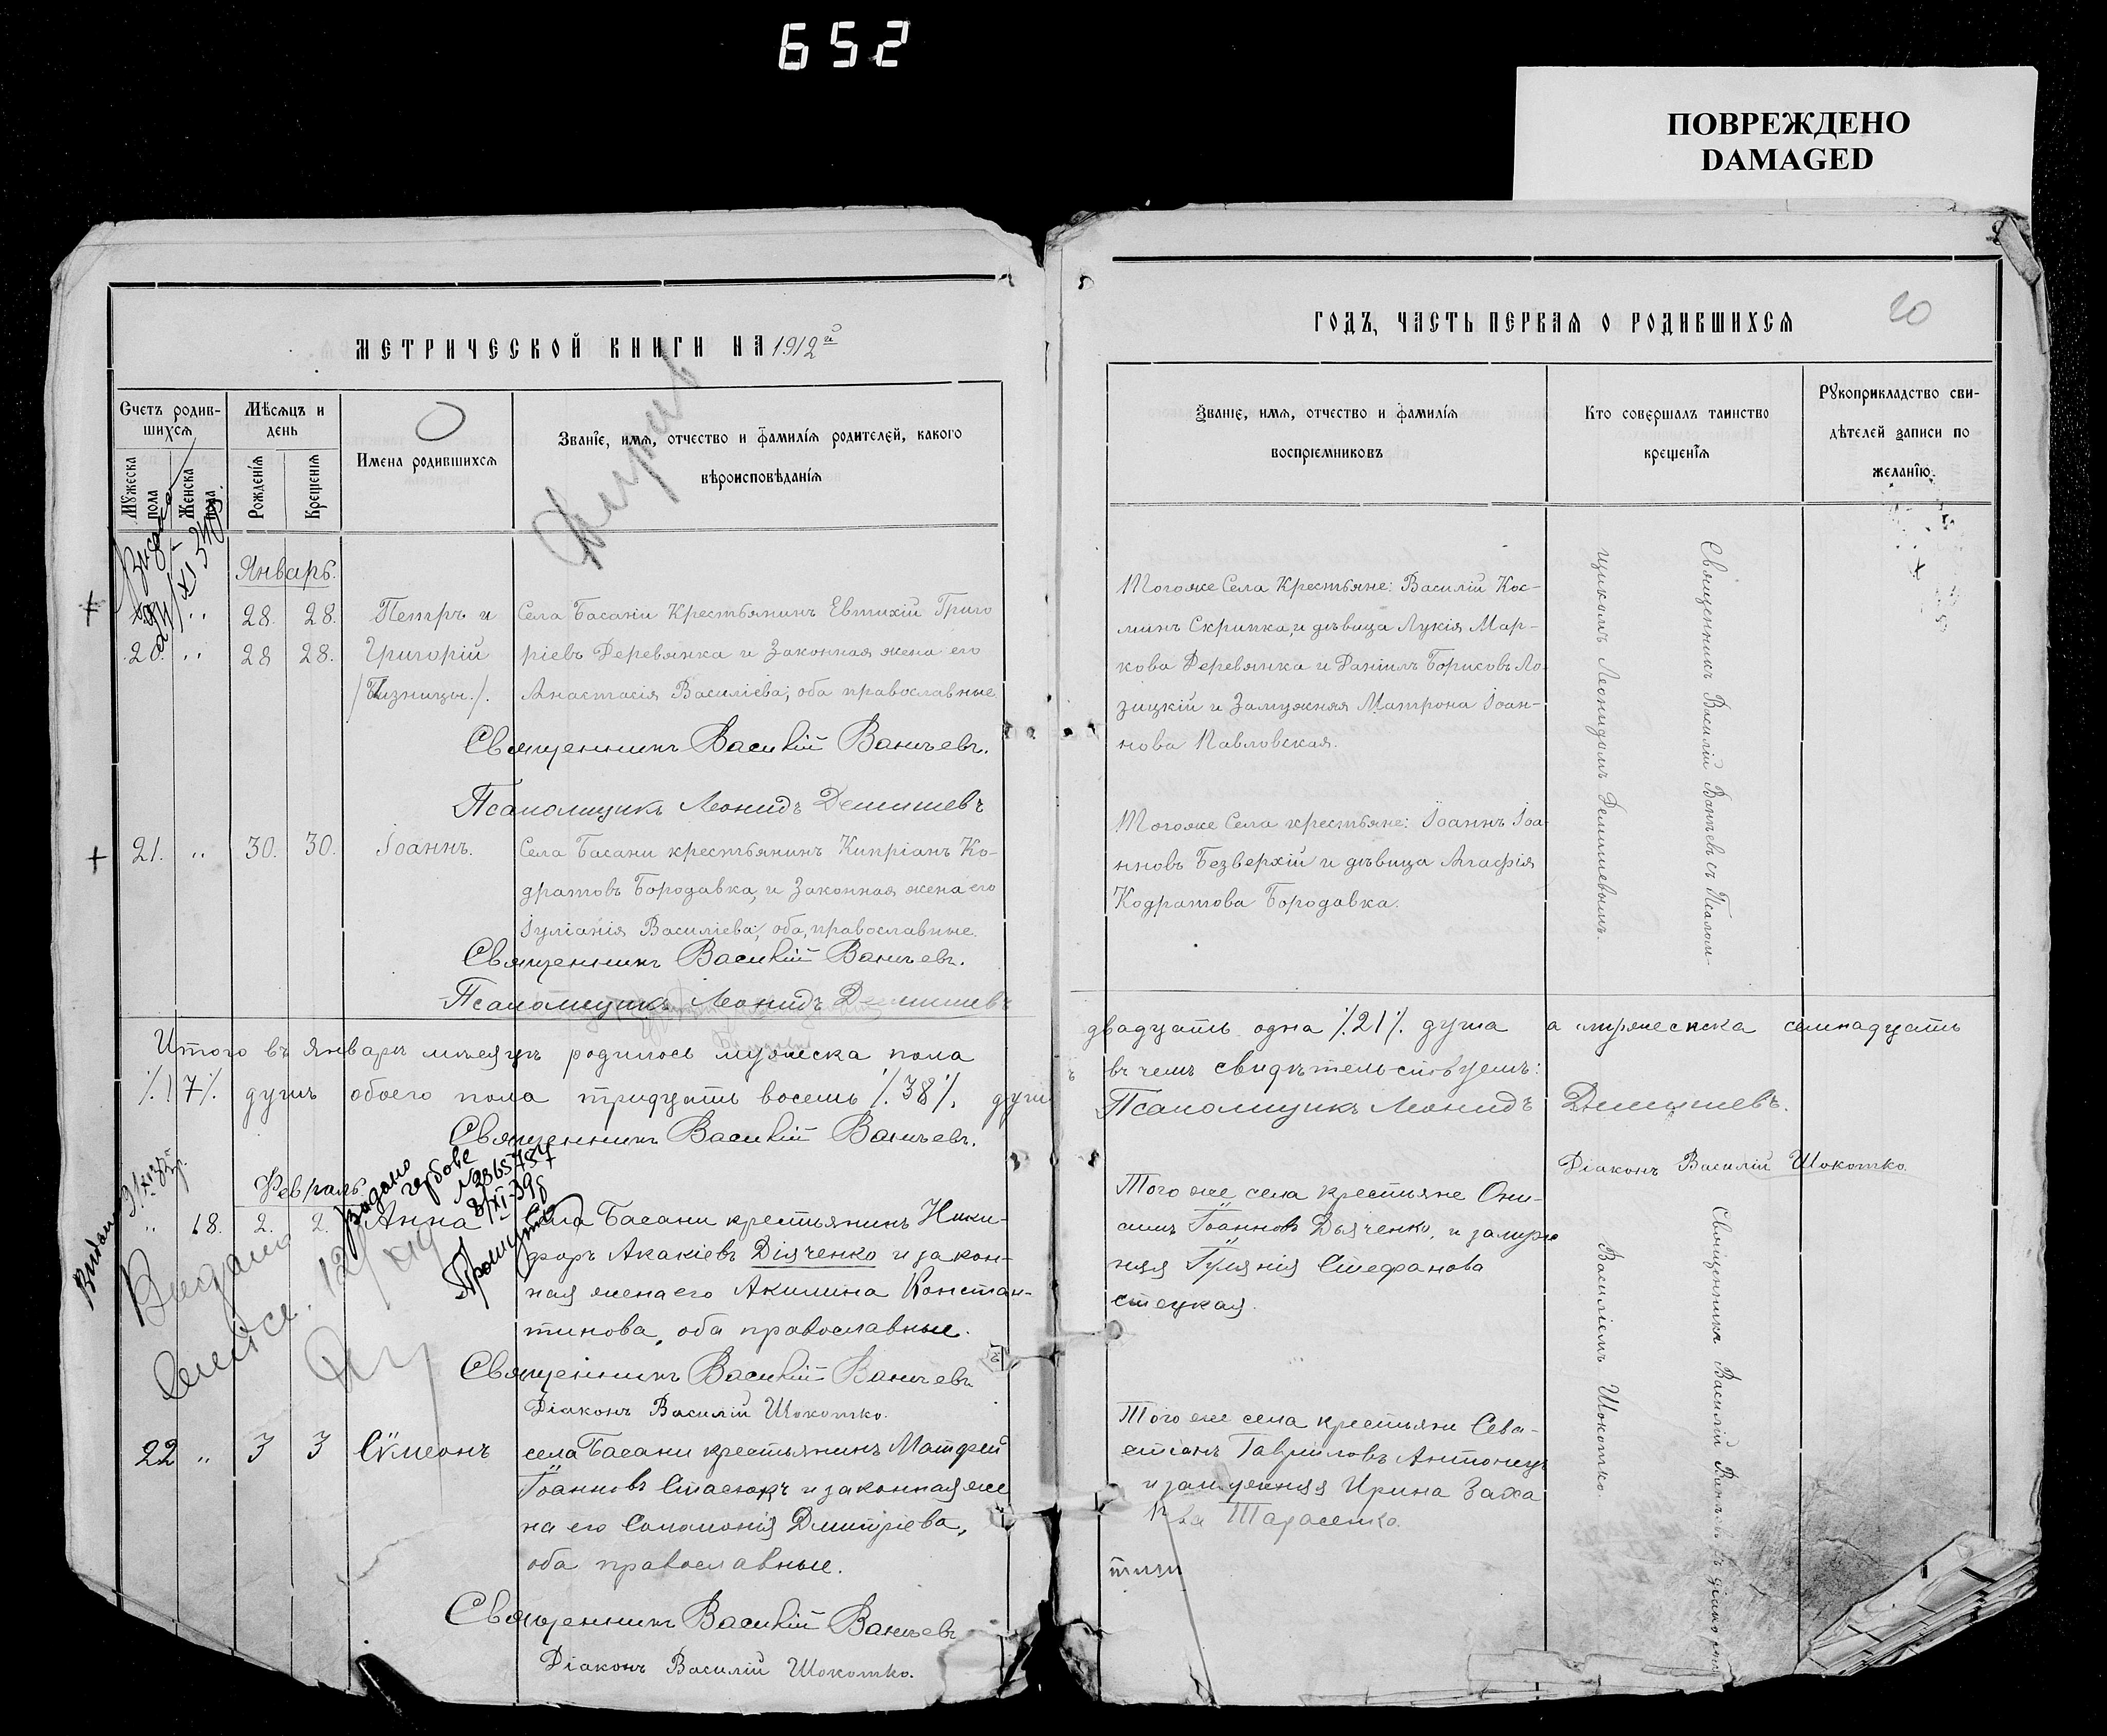 652
ПОВРЕЖДЕНО
DAMAGED
МЕТРИЧЕСКОЙ КНИГИ НА 1912й
Счетъ родив-
шихся
Мѣсяцъ и
день
Имена родившихся
Званіе, имя, отчество и фамилія родителей, какого
вѣроисповѣданія
Мужеска
пола
Женска
пола.
Рожденія
Крещенія
Январь.
„ 28. 28. Петръ и Села Басани Крестьянинъ Евтихій Григо
20. „ 28 28. Григорій ріевъ Деревянка и Законная жена его
/Близницы./. Анастасія Василіева, оба православные
Священникъ Василій Ванчевъ.
Псаломщикъ Леонидъ Демишевъ
21. „ 30. 30. Іоаннъ. Села Басани крестьянинъ Кипріанъ Ко-
дратовъ Бородавка, и Законная жена его
Іуліанія Василіева, оба, православные.
Священникъ Василій Ванчевъ.
Псаломщикъ Леонидъ Демишевъ
Итого въ Январѣ мѣсяцѣ родилось мужеска пола
/.17/. душъ обоего пола тридцать восемь /.38/. душ
Священникъ Василій Ванчевъ.
Февраль.
Видано
гербове
8/XI-39р
„ 18. 2. 2. Анна Села Басани крестьянинъ Ники-
форъ Акакіевъ Діяченко и закон-
ная жена его Акилина Констан-
тинова, оба православные.
Священникъ Василій Ванчевъ
Діаконъ Василій Шокотко.
Видано
22 „ 3 3 Сѵмеонъ села Басани крестьянинъ Матфей
Іоанновъ Стасюкъ и законная же
на его Соломонія Димитріева,
оба православные.
Священникъ Василій Ванчевъ
Діаконъ Василій Шокотко.
ГОДЪ, ЧАСТЬ ПЕРВАЯ О РОДИВШИХСЯ
20
Званіе, имя, отчество и фамилія
воспріемниковъ
Кто совершалъ таинство
крещенія
Рукоприкладство сви-
дѣтелей записи по
желанію.
Тогоже Села Крестьяне: Василій Кос-
минъ Скрипка, и дѣвица Лукія Мар-
кова Деревянка и Даніилъ Борисовъ Ло-
зицкій и Замужняя Матрона Іоан-
нова Павловская.
Тогоже Села крестьяне: Іоаннъ Іоа-
нновъ Безверхій и дѣвица Агафія
Кодратова Бородавка.
Священникъ Василій Ванчевъ съ Псалом-
щикомъ Леонидомъ Демишевымъ.
двадцать одна /.21/. душа а женеска семнадцать
въ чемъ свидѣтельствуемъ:
Псаломщикъ Леонидъ Демишевъ.
Діаконъ Василій Шокотко.
Того же села крестьяне Они-
симъ Іоанновъ Дьяченко, и замуж
няя Іуліянія Стефанова
Стецкая.
Того же села крестьяни Сева-
стіанъ Гавріиловъ Антонецъ
и замужняя Ирина Заха
Тарасенко.
Священникъ Василій Ванчевъ съ діакономъ
Василіемъ Шокотко.